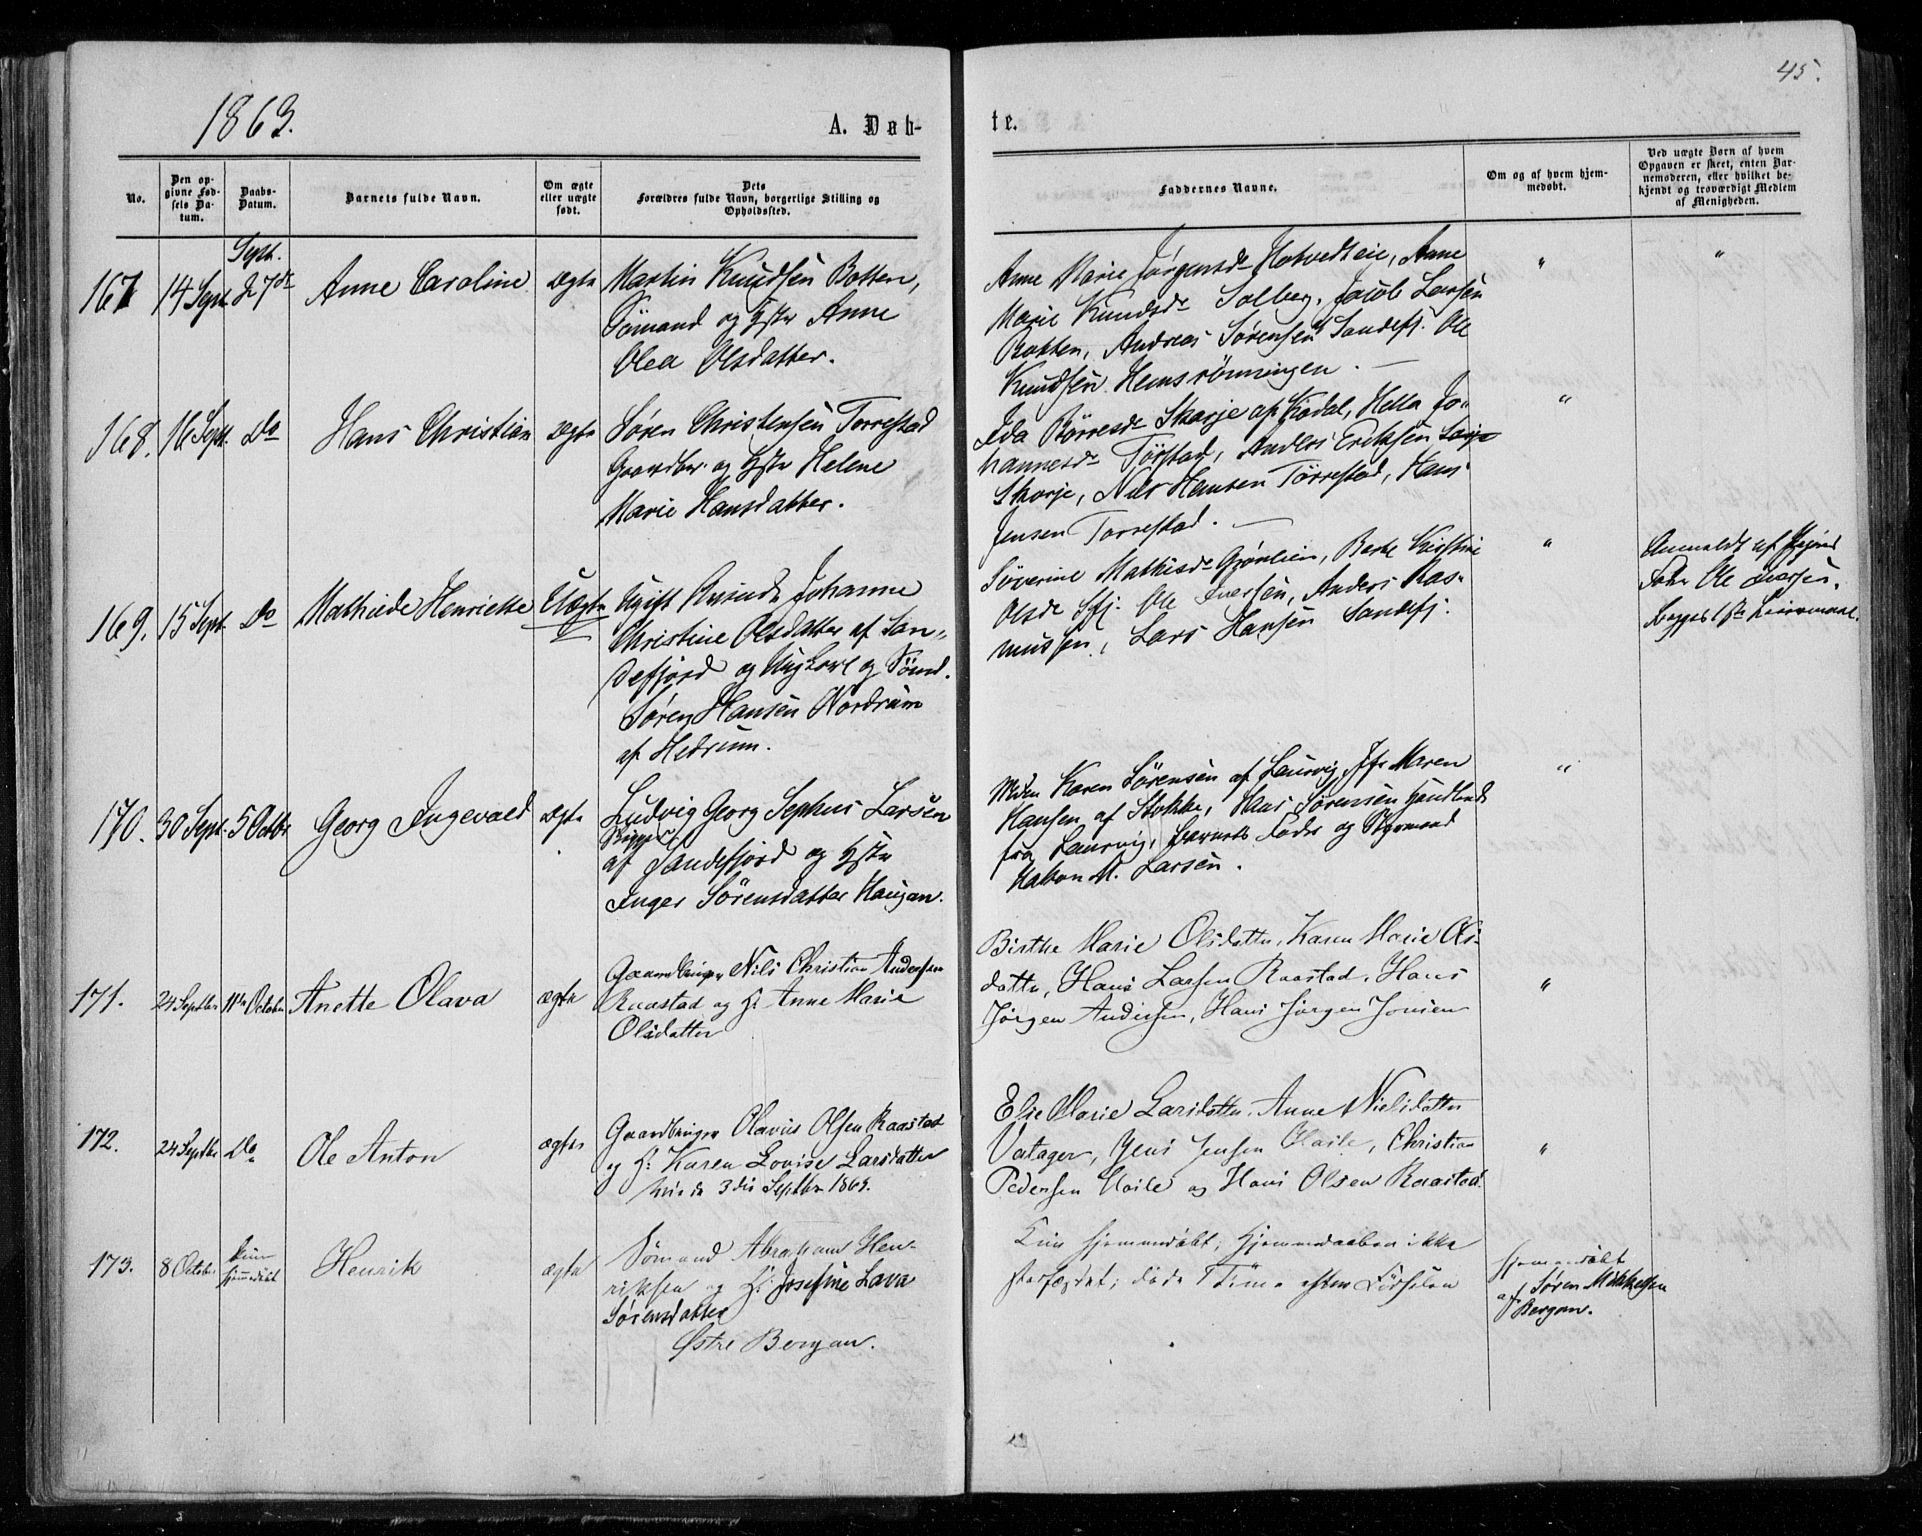 1863.
A. Døb-
te.
45.
No.
Den op-
givne Fød-
sels Da-
tum.
Daabs-
Datum.
Barnets fulde Navn.
Om ægte
eller uægte
født.
Dets
Forældres fulde Navn, borgerlige Stilling og
Opholdssted.
Faddernes Navne.
Om og af hvem hjem-
medøbt.
Ved uægte Barn af hvem
Opgaven er skeet, enten Bar-
nemoderen, eller hvilket be-
kjendt og troværdigt Medlem
af Menigheden.
167
14 Sept.
Sept.
d 27de
Anne Caroline
ægte
Martin Knudsen Botten,
Sømand og Hstr Anne
Olea Olsdatter.
Anne Marie Jørgensdr Hotvedteie, Anne
Marie Knudsdr Solberg, Jacob Larsen
Botten, Andreas Sørensen Sandefj. Ole
Knudsen Hemsrønningen.
"
"
168.
16 Sept.
Do
Hans Christian
Ægte
Søren Christensen Torrestad
Gaardbr. og Hstr Helene
Marie Hansdatter.
Ida Børresdr Skorje af Kodal, Hella Jo-
hannesdr Tørstad, Anders Eriksen
Skorje, Nils Hansen Tørrestad, Hans
Jensen Torrestad.
"
169.
15 Sept.
Do
Mathilde Henriette
Uægte
Ugift Qvinde Johanne
Christine Olsdatter af San-
defjord og Ungkarl og Sømd.
Søren Hansen Nordrum
af Hedrum.
Søverine Mathisdr Grønlien, Berte Kirstine
Olsdr Sfj. Ole Iversen, Anders Ras-
mussen, Lars Hansen Sandefj.
"
Anmeldt af
Fader Ole Iversen.
Begges 1ste Leiermaal.
170.
30 Sept.
5 Octbr.
Georg Ingevald
ægte
Ludvig Georg Sephus Larsen
Skipper
af Sandefjord og Hstr
Inger Sørensdatter Haugan.
Mdm Karen Sørensen af Laurvig, Jfr Maren
Hansen af Stokke, Hans Sørensen Handlende
fra Laurvig, Barnets Fader og Styrmand
Hakon M. Larsen.
"
171.
24 Septbr
11te October
Anette Olava
ægte
Gaardbruger Nils Christian Andersen
Raastad og H. Anne Marie
Olsdatter
Birthe Marie Olsdatter, Karen Marie Ols-
datter, Hans Larsen Raastad, Hans
Jørgen Andersen, Hans Jørgen Jonsen
"
172.
24 Septbr
Do
Ole Anton
ægte
Gaardbruger Olavus Olsen Raastad
og H: Karen Lovise Larsdatter
3die Septbr 1863.
Else Marie Larsdatter, Anne Nielsdatter
Valager, Jens Jensen Haile, Christian
Pedersen Haile og Hans Olsen Raastad.
"
173.
8 October
kun
hjemmedøbt
Henrik
ægte
Sømand Abraham Hen-
riksen og H: Josefine Lava
Sørensdatter
Østre Bergan.
Kun hjemmedøbt, Hjemmedaaben ikke
stadfæstet; døde 1 Time efter Fødselen
hjemmedøbt
af Søren Mikkelsen
Bergan.